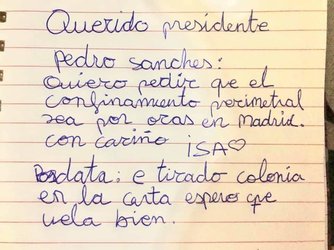 Querido presidente
Pedro Sanches:
Quiero pedir que el
confinamiento perimetral
sea por oras en Madrid.
con cariño ISA♡
Posdata: e tirado colonia
en la carta espero que
uela bien.